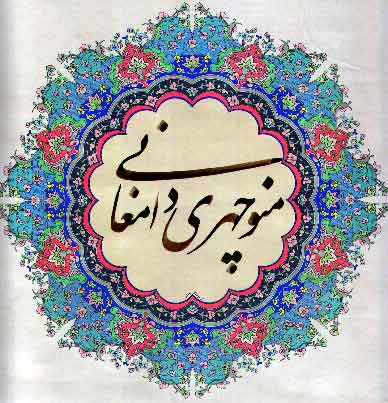 منوچهری دامغانی